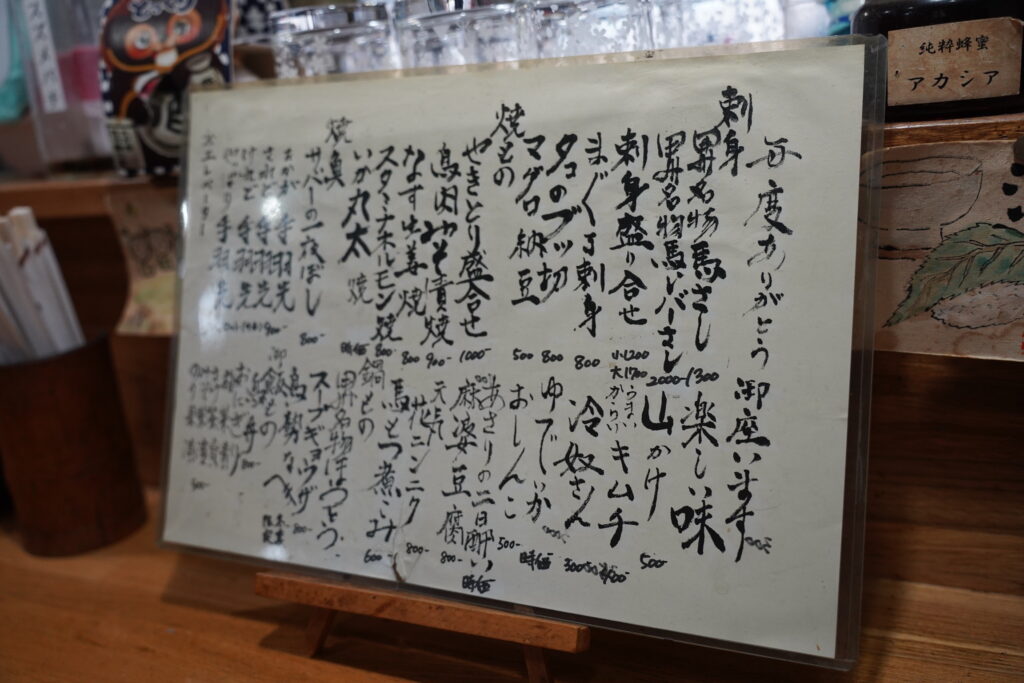 毎度ありがとう御座います
刺身
男名物馬さし 1300
男名物馬レバーさし 2000-
刺身盛り合せ 小1200 大1700
まぐろ刺身 800
タコのブッ切 800
マグロ納豆 500
焼もの
やきとり盛合せ 1000-
鳥肉みそ漬焼 900-
なす生姜焼 800
スタミナホルモン焼 800-
いか丸太焼 時価
焼魚
サバーの一夜ぼし 800-
手羽先 900-
手羽先
手羽先
手羽先
楽しい味
山かけ 500-
うまい からい キムチ
冷奴さん 300
ゆでいか 時価
おしんこ 500-
あさりの二日酔い 時価
麻婆豆腐 800-
元気 ニンニク 800-
馬もつ煮こみ 600-
鍋もの
男名物ほうとう
スープギョウザ 800-
鳥勢なべ
御飯もの
丼 800-
おにぎり
純粋蜂蜜
アカシア